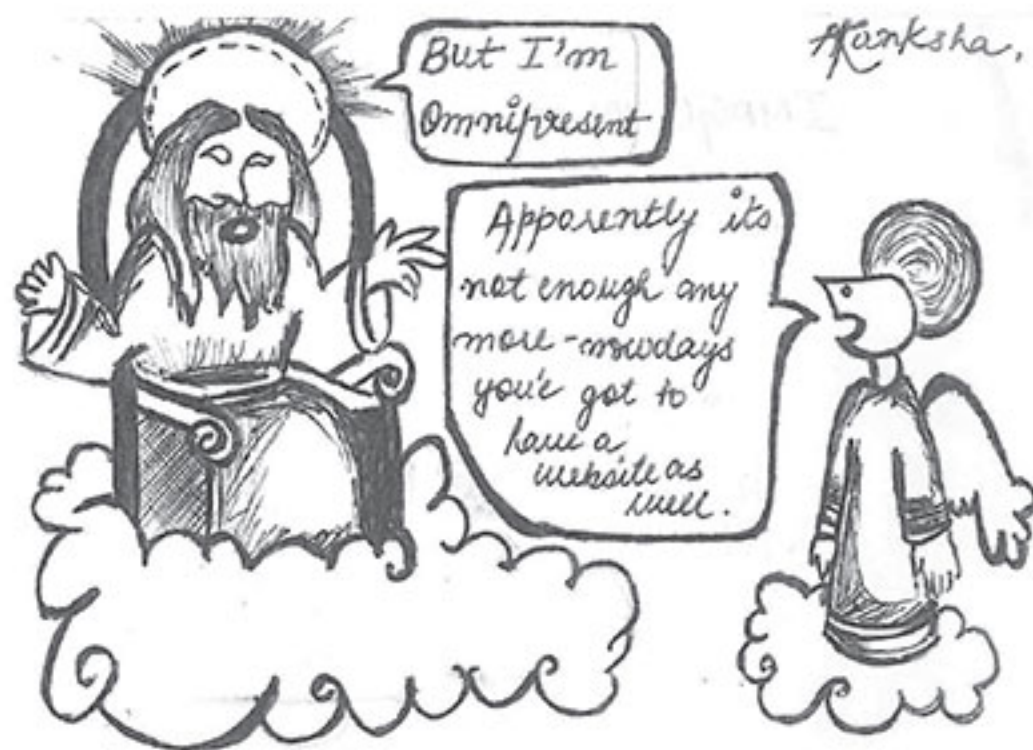 But I'm
Omnipresent
Akanksha,
Apparently its
not enough any
more - nowdays
you've got to
have a
website as
well.